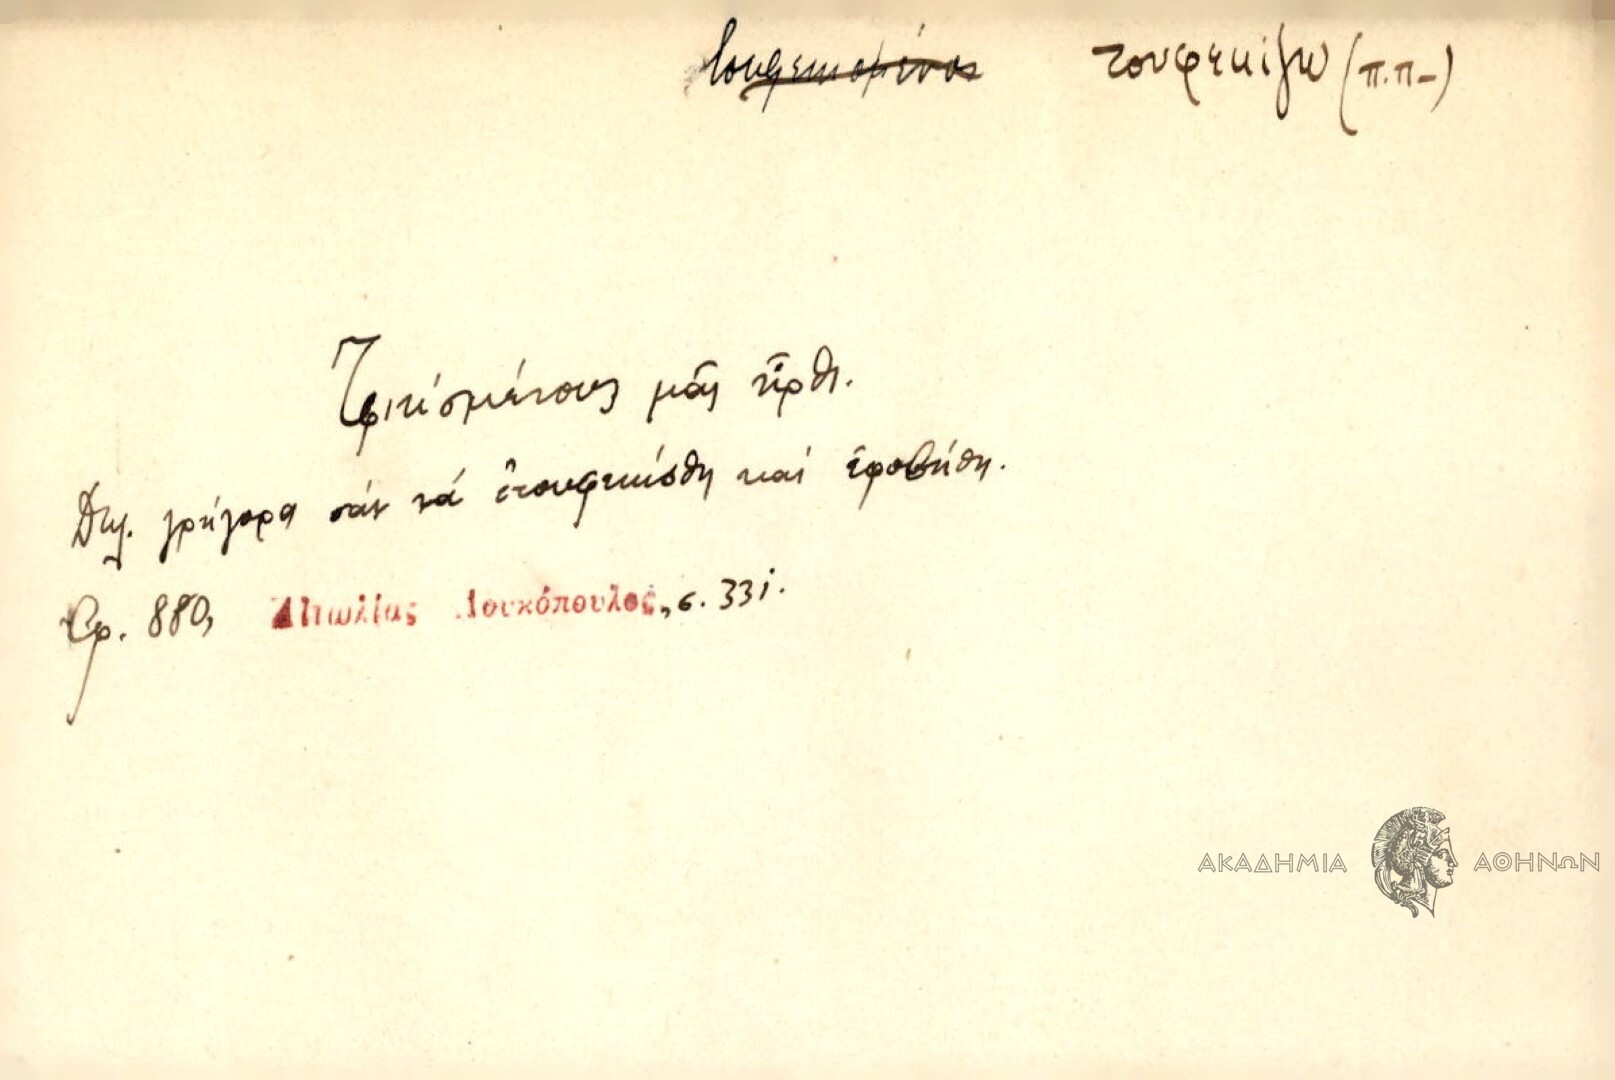 τουφεκισμένος τουφεκίζω (π.π-)
Τφικισμένους μᾶς ἦρθι.
Δηλ. γρήγορα σάν νά ἐτουφεκίσθη καί ἐφοβήθη.
Ἀρ. 880, Αἰτωλίας Λουκόπουλος, σ. 331.
ΑΚΑΔΗΜΙΑ ΑΘΗΝΩΝ